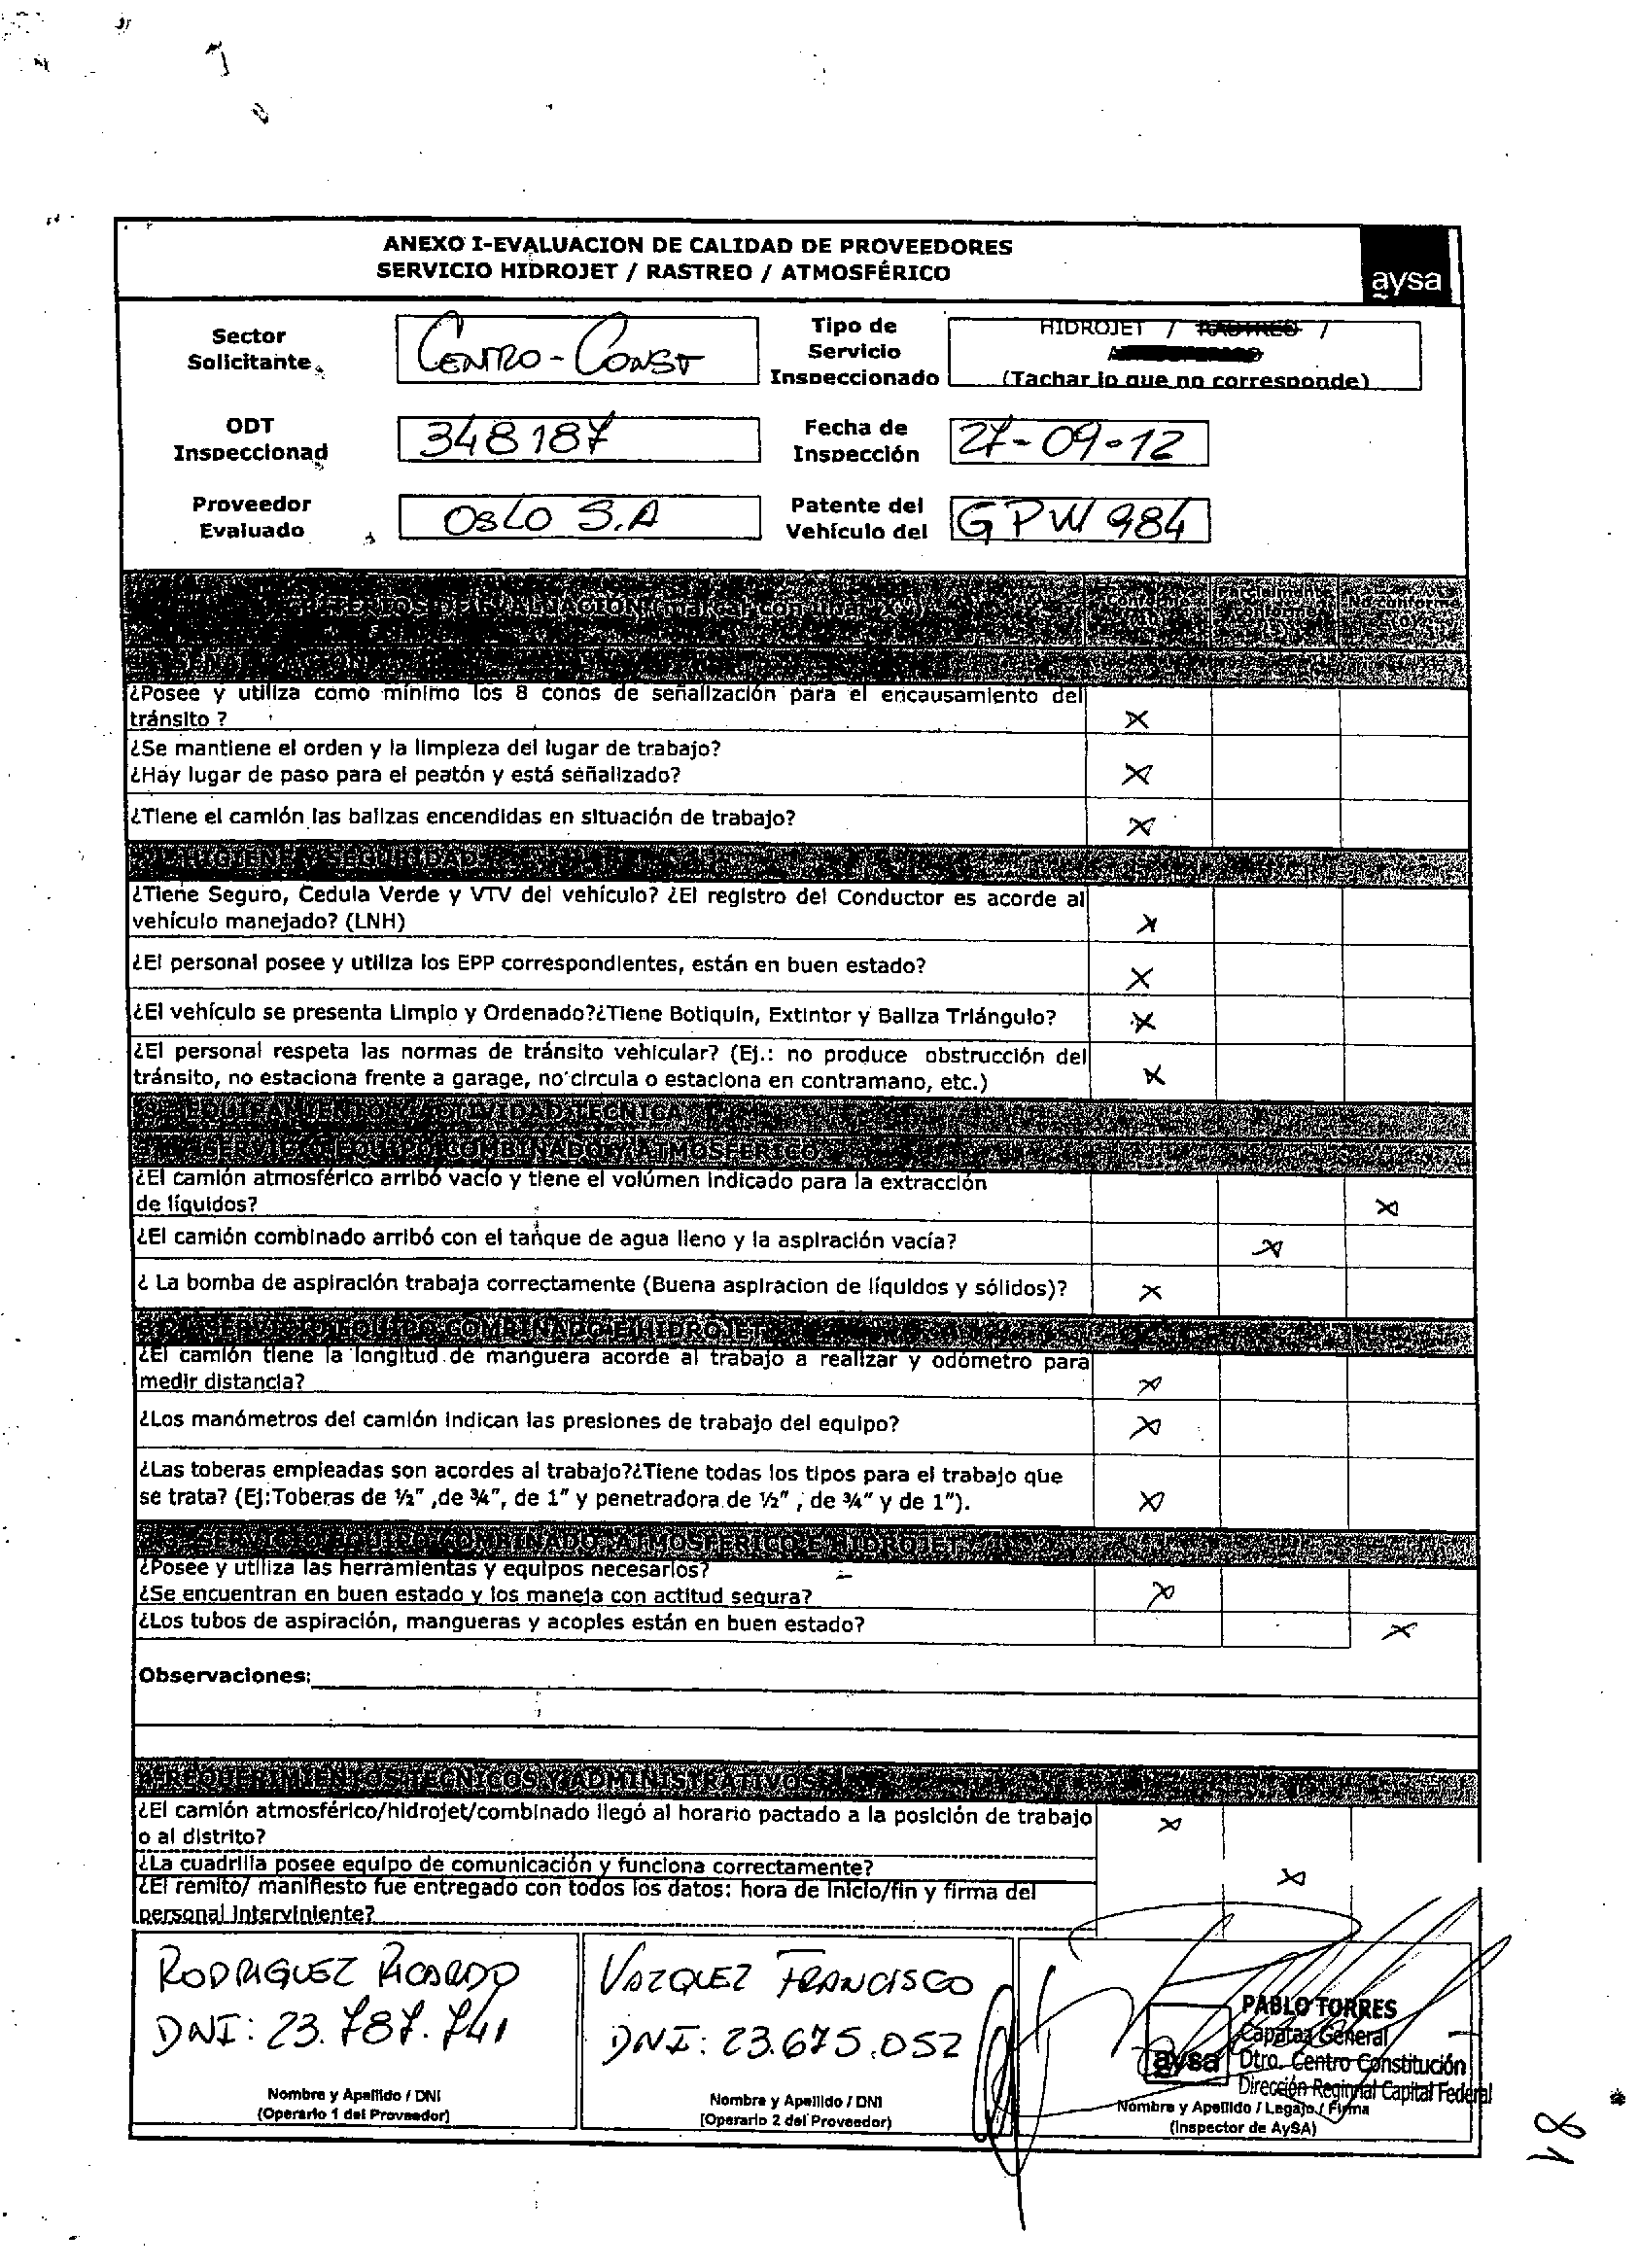 ANEXO I-EVALUACION DE CALIDAD DE PROVEEDORES
SERVICIO HIDROJET / RASTREO / ATMOSFÉRICO
aysa
Sector
Solicitante
CENTRO-CONST
Tipo de
Servicio
Inspeccionado
HIDROJET / RASTREO /
(Tachar lo que no corresponde)
ODT
Inspeccionad
348187
Fecha de
Inspección
27-09-12
Proveedor
Evaluado
OSLO S.A
Patente del
Vehículo del
GPW 984
CRITERIOS DE EVALUACIÓN (marcar con una X)
Conforme
Parcialmente
conforme
No conforme
SEÑALIZACION
¿Posee y utiliza como mínimo los 8 conos de señalización para el encausamiento del
tránsito ?
X
¿Se mantiene el orden y la limpieza del lugar de trabajo?
¿Hay lugar de paso para el peatón y está señalizado?
X
¿Tiene el camión las balizas encendidas en situación de trabajo?
X
HIGIENE Y SEGURIDAD
¿Tiene Seguro, Cedula Verde y VTV del vehículo? ¿El registro del Conductor es acorde al
vehículo manejado? (LNH)
X
¿El personal posee y utiliza los EPP correspondientes, están en buen estado?
X
¿El vehículo se presenta Limpio y Ordenado?¿Tiene Botiquín, Extintor y Baliza Triángulo?
X
¿El personal respeta las normas de tránsito vehicular? (Ej.: no produce obstrucción del
tránsito, no estaciona frente a garage, no circula o estaciona en contramano, etc.)
X
EQUIPAMIENTO Y ACTIVIDAD TECNICA
SERVICIO EQUIPO COMBINADO Y ATMOSFERICO
¿El camión atmosférico arribó vacío y tiene el volúmen indicado para la extracción
de líquidos?
X
¿El camión combinado arribó con el tanque de agua lleno y la aspiración vacía?
X
¿ La bomba de aspiración trabaja correctamente (Buena aspiracion de líquidos y sólidos)?
X
SERVICIO EQUIPO COMBINADO E HIDROJET
¿El camión tiene la longitud de manguera acorde al trabajo a realizar y odómetro para
medir distancia?
X
¿Los manómetros del camión indican las presiones de trabajo del equipo?
X
¿Las toberas empleadas son acordes al trabajo?¿Tiene todas los tipos para el trabajo que
se trata? (Ej:Toberas de ½" ,de ¾", de 1" y penetradora de ½" , de ¾" y de 1").
X
SERVICIO EQUIPO COMBINADO, ATMOSFERICO E HIDROJET
¿Posee y utiliza las herramientas y equipos necesarios?
¿Se encuentran en buen estado y los maneja con actitud segura?
X
¿Los tubos de aspiración, mangueras y acoples están en buen estado?
X
Observaciones:
REQUERIMIENTOS TECNICOS Y ADMINISTRATIVOS
¿El camión atmosférico/hidrojet/combinado llegó al horario pactado a la posición de trabajo
o al distrito?
X
¿La cuadrilla posee equipo de comunicación y funciona correctamente?
X
¿El remito/ manifiesto fue entregado con todos los datos: hora de inicio/fin y firma del
personal interviniente?
RODRIGUEZ RICARDO
DNI: 23.787.741
Nombre y Apellido / DNI
(Operario 1 del Proveedor)
VAZQUEZ FRANCISCO
DNI: 23.675.052
Nombre y Apellido / DNI
(Operario 2 del Proveedor)
aysa
PABLO TORRES
Capataz General
Dtro. Centro Constitución
Dirección Regional Capital Federal
Nombre y Apellido / Legajo / Firma
(Inspector de AySA)
81